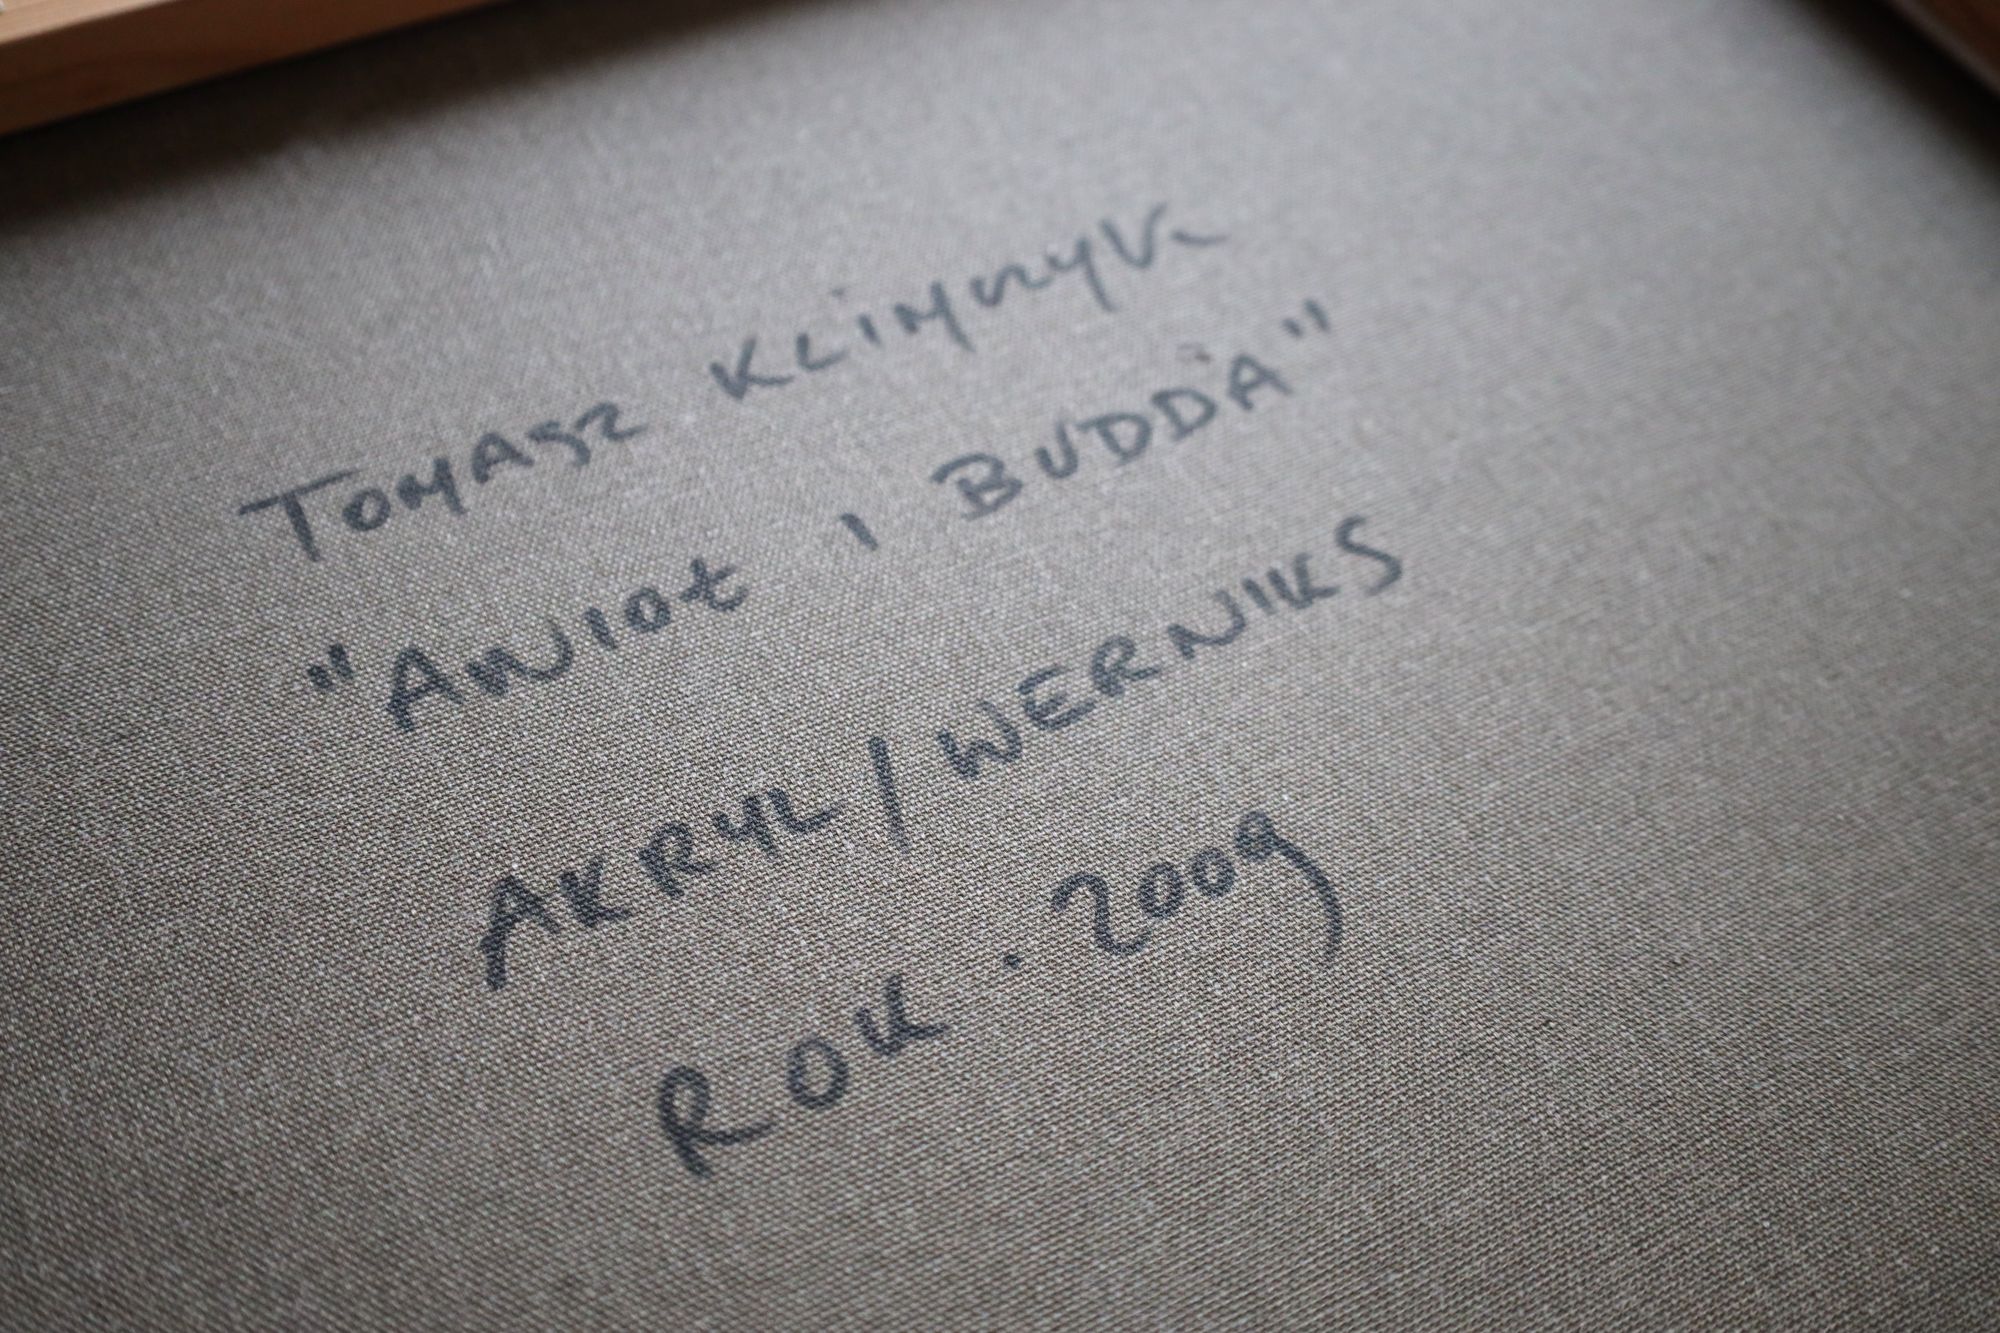 TOMASZ KLIMCZYK
"ANIOŁ I BUDDA"
AKRYL/WERNIKS
ROK. 2009